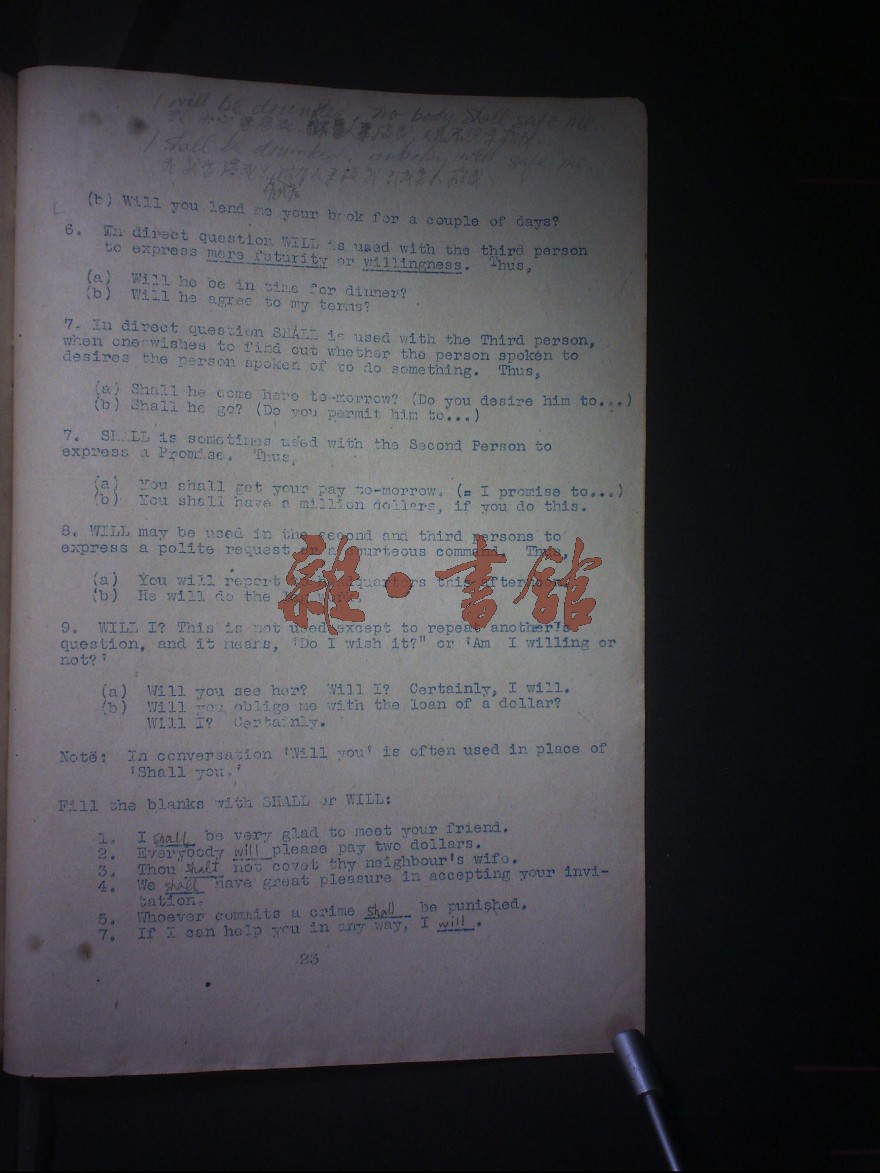 I will be drownded, no body shall safe me.
I shall be drownded, nobody will safe me.
(b) Will you lend me your book for a couple of days?
6. In direct question WILL is used with the third person
to express mere futurity or willingness. Thus,
(a) Will he be in time for dinner?
(b) Will he agree to my terms?
7. In direct question SHALL is used with the Third person,
when one wishes to find out whether the person spoken to
desires the person spoken of to do something. Thus,
(a) Shall he come here to-morrow? (Do you desire him to...)
(b) Shall he go? (Do you permit him to...)
7. SHALL is sometimes used with the Second Person to
express a Promise. Thus,
(a) You shall get your pay to-morrow. (= I promise to...)
(b) You shall have a million dollars, if you do this.
8. WILL may be used in the second and third persons to
express a polite request or a courteous command. Thus,
(a) You will report to headquarters this afternoon.
(b) He will do the
雜·書館
9. WILL I? This is not used except to repeat another's
question, and it means, 'Do I wish it?" or 'Am I willing or
not?'
(a) Will you see her? Will I? Certainly, I will.
(b) Will you oblige me with the loan of a dollar?
Will I? Certainly.
Note: In conversation 'Will you' is often used in place of
'Shall you.'
Fill the blanks with SHALL or WILL:
1. I shall be very glad to meet your friend.
2. Everybody will please pay two dollars.
3. Thou shalt not covet thy neighbour's wife.
4. We shall have great pleasure in accepting your invi-
tation.
5. Whoever commits a crime shall be punished.
7. If I can help you in any way, I will.
23